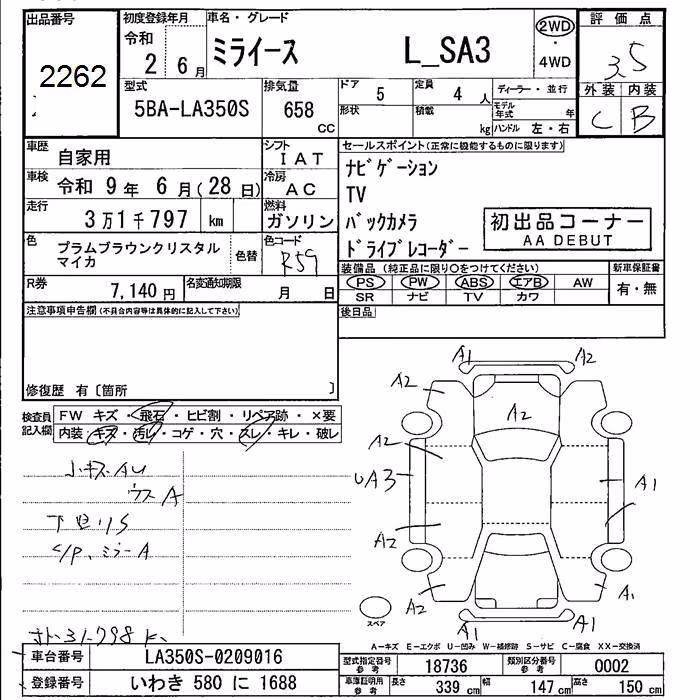 出品番号 初度登録年月 車名・グレード 2WD 評価点
令和 2 6月 ミライース L_SA3 ・ 3.5
2262 4WD
型式 排気量 ドア 5 定員 4人 ディーラー・並行 外装 内装
5BA-LA350S 658 cc 形状 積載 kg モデル年式 年 C B
ハンドル 左・右
車歴 自家用 シフト IAT セールスポイント(正常に機能するものに限ります)
車検 令和 9年 6月(28日) 冷房 AC ナビゲーション
TV
走行 3万1千797 km 燃料 ガソリン バックカメラ
初出品コーナー
AA DEBUT
色 プラムブラウンクリスタルマイカ 色替 色コード R59 ドライブレコーダー
装備品(純正品に限り〇をつけてください) 新車保証書
R券 7,140円 名変通知期限 月 日 PS PW ABS エアB AW 有・無
SR ナビ TV カワ
注意事項申告欄(不具合内容等は具体的に記入して下さい) 後日品
修復歴 有〔箇所 〕
検査員記入欄 FW キズ・飛石・ヒビ割・リペア跡・×要
内装・キズ・汚れ・コゲ・穴・スレ・キレ・破レ
小キズ AU
ウス A
下回りS
C/P、ミラーA
A1 A2
A2
A2
A2
UA3 A1
A2
A2 A1
A1 A1
スペア
A-キズ E-エクボ U-凹み W-補修跡 S-サビ C-腐食 XX-交換済
車台番号 LA350S-0209016 型式指定番号 参考 18736 類別区分番号 参考 0002
登録番号 いわき 580 に 1688 車庫証明用 参考 長さ 339 cm 幅 147 cm 高さ 150 cm